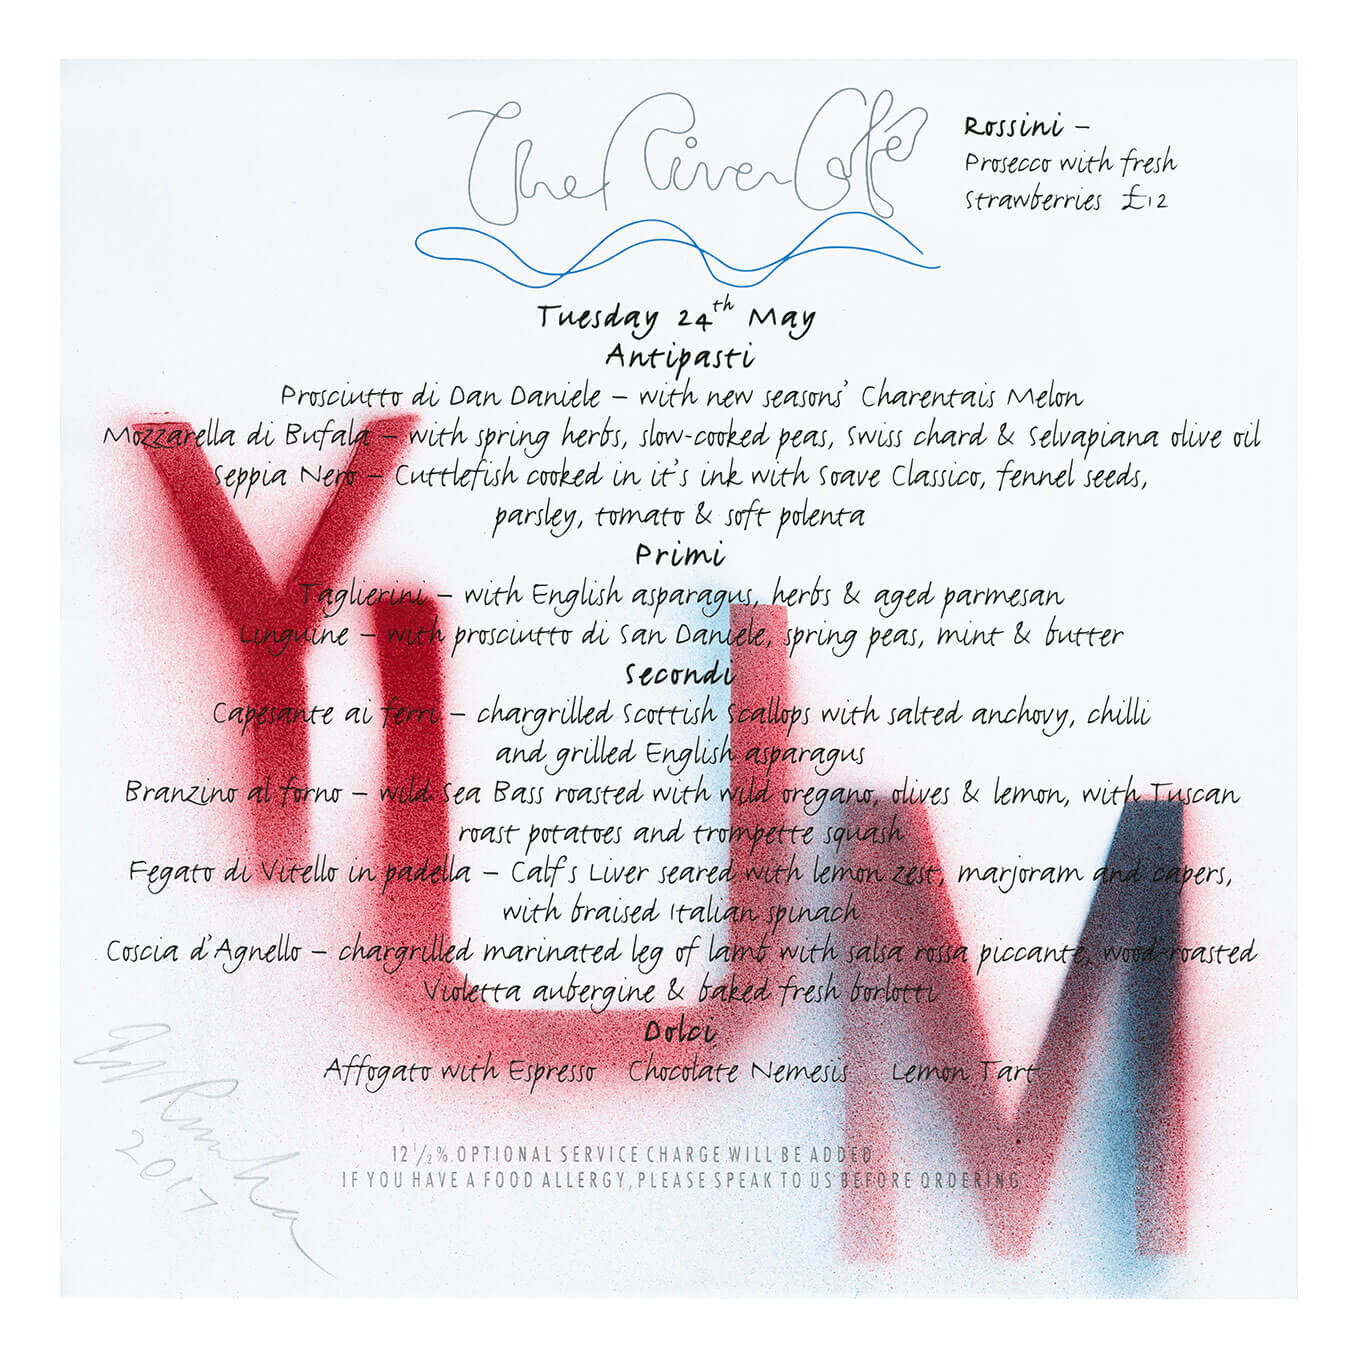 The River Café
Rossini –
Prosecco with fresh
Strawberries £12
Tuesday 24th May
Antipasti
Prosciutto di Dan Daniele – with new seasons' Charentais Melon
Mozzarella di Bufala – with spring herbs, slow-cooked peas, Swiss chard & Selvapiana olive oil
Seppia Nero – Cuttlefish cooked in it's ink with Soave Classico, fennel seeds,
parsley, tomato & soft polenta
Primi
Taglierini – with English asparagus, herbs & aged parmesan
Linguine – with prosciutto di San Daniele, spring peas, mint & butter
Secondi
Capesante ai ferri – chargrilled Scottish Scallops with salted anchovy, chilli
and grilled English asparagus
Branzino al forno – wild Sea Bass roasted with wild oregano, olives & lemon, with Tuscan
roast potatoes and trompette squash
Fegato di Vitello in padella – Calf s Liver seared with lemon zest, marjoram and capers,
with braised Italian spinach
Coscia d'Agnello – chargrilled marinated leg of lamb with salsa rossa piccante, wood-roasted
Violetta aubergine & baked fresh borlotti
Dolci
Affogato with Espresso Chocolate Nemesis Lemon Tart
12 ½% OPTIONAL SERVICE CHARGE WILL BE ADDED.
IF YOU HAVE A FOOD ALLERGY, PLEASE SPEAK TO US BEFORE ORDERING.
YUM
Ed Ruscha
2017